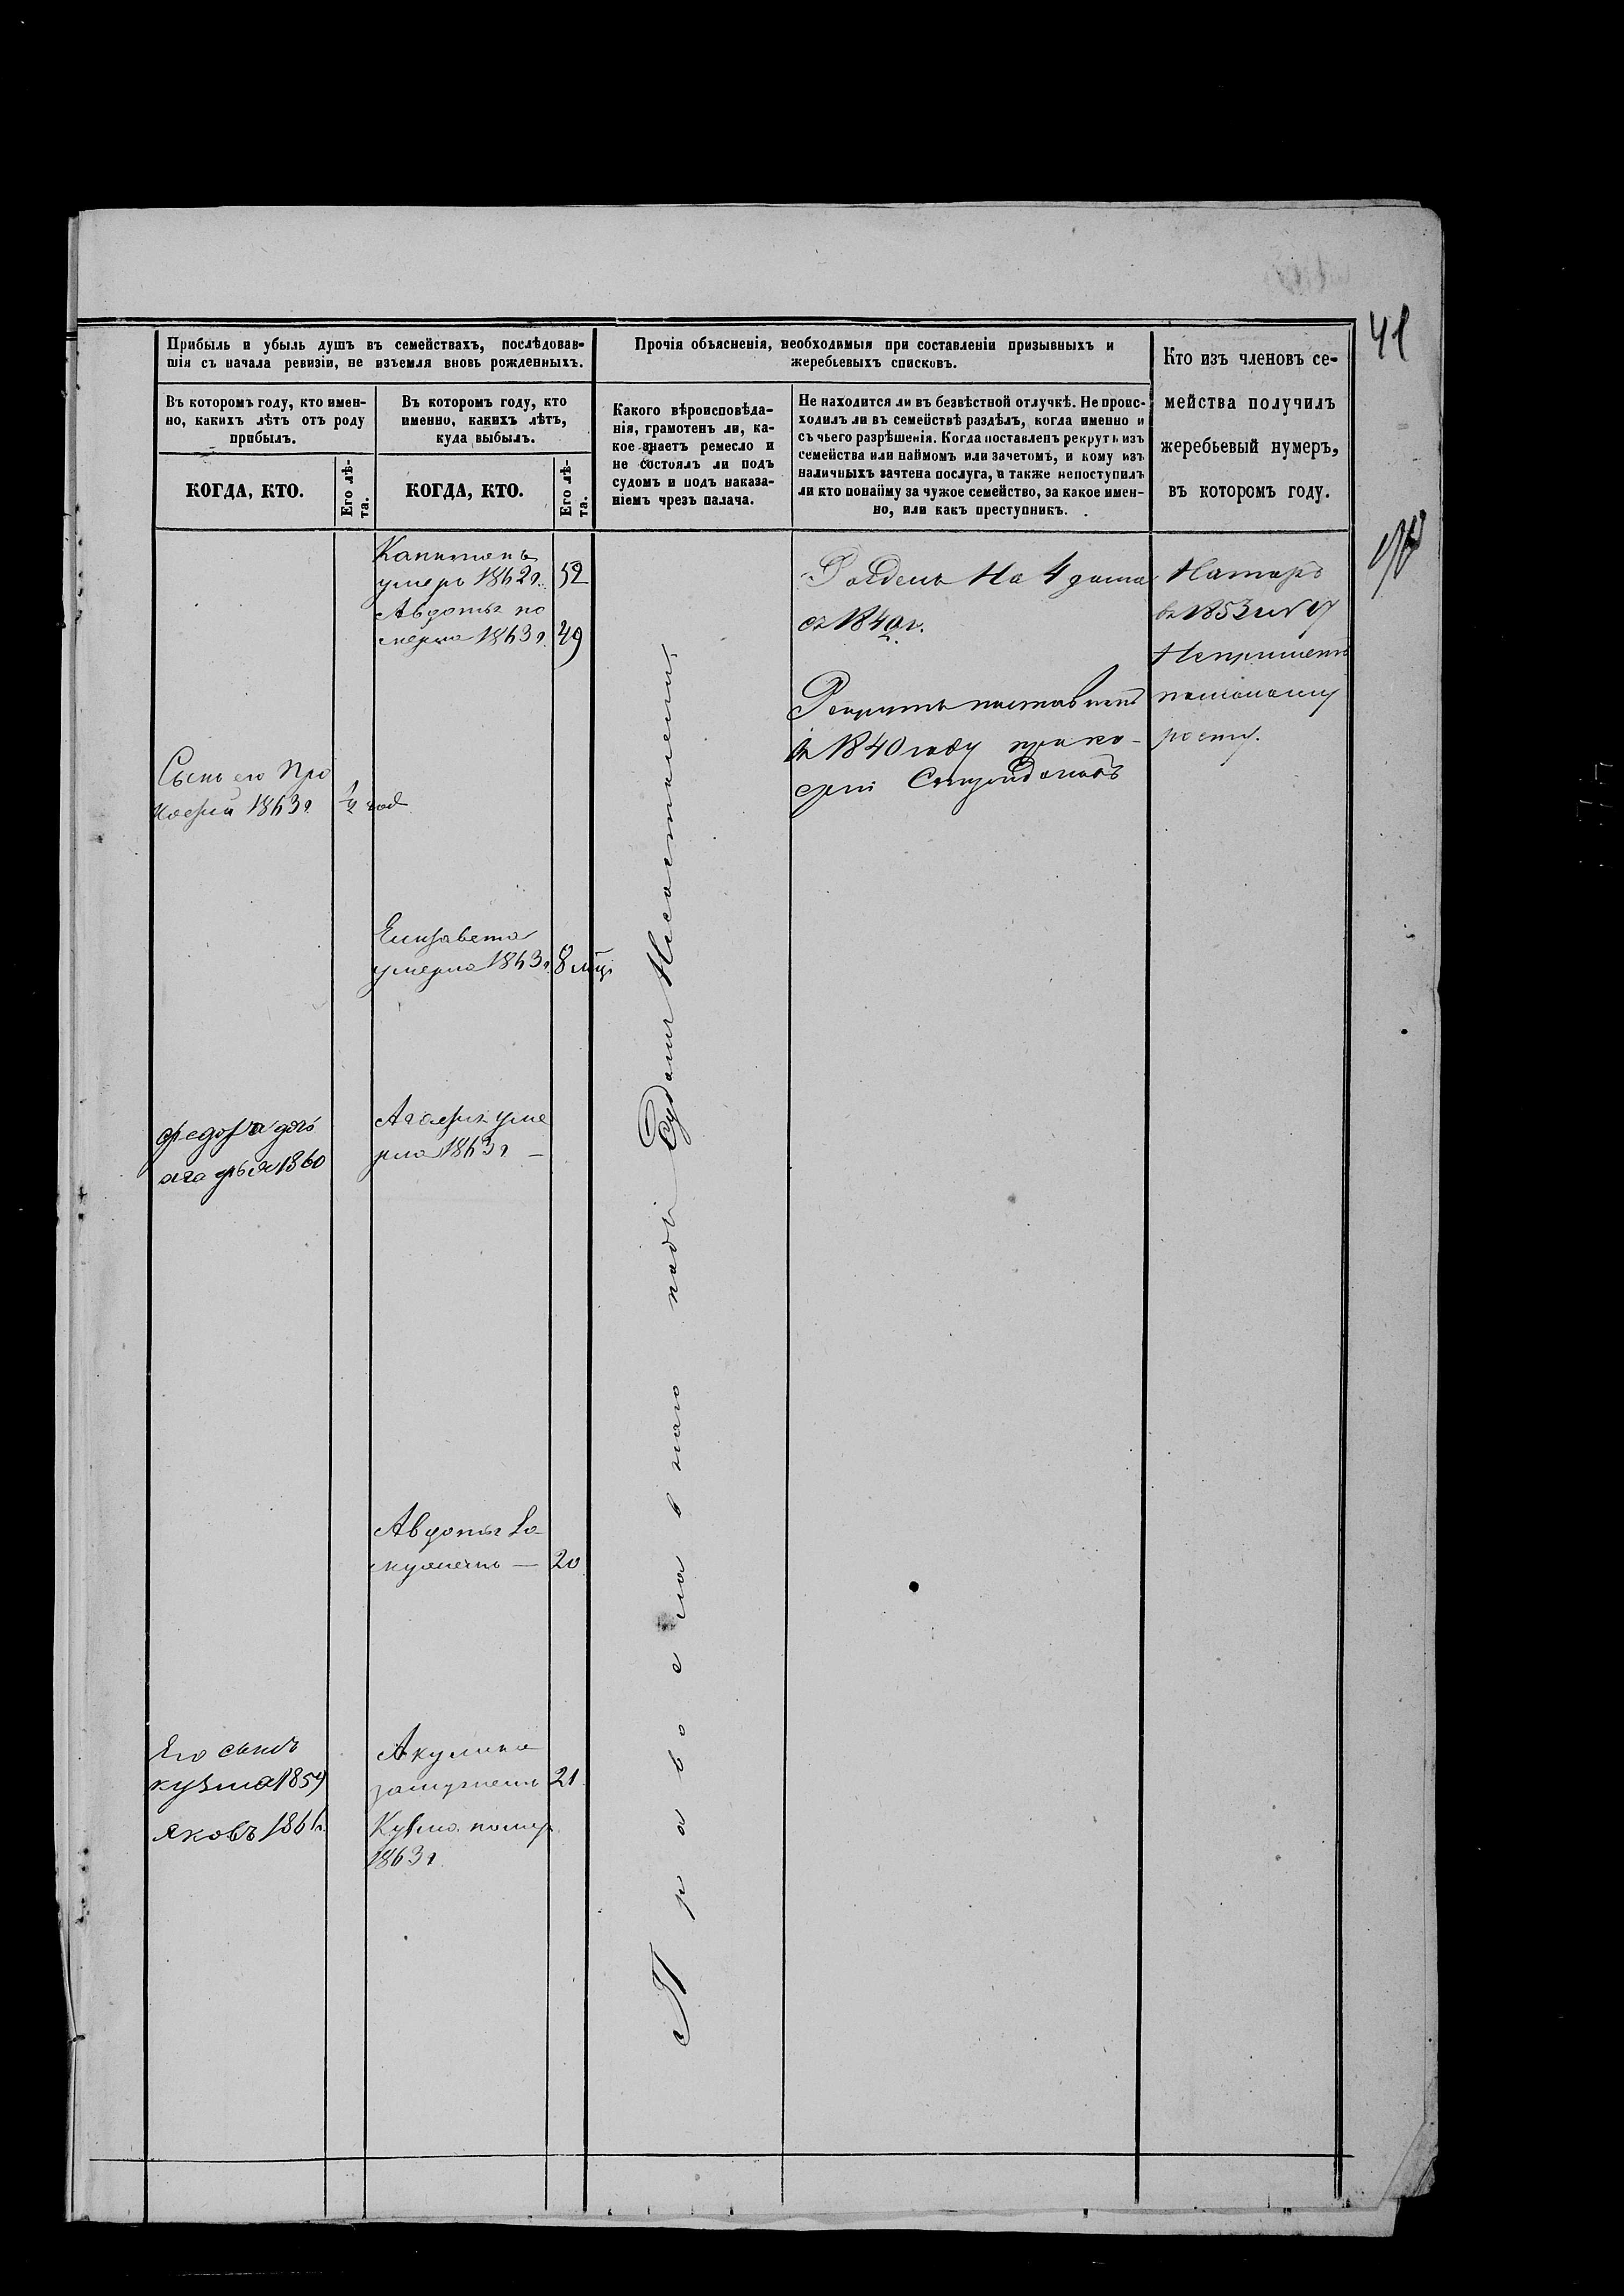 41
Прибыль и убыль душъ въ семействахъ, послѣдовав-
шія съ начала ревизіи, не изъемля вновь рожденныхъ.
Въ которомъ году, кто имен-
но, какихъ лѣтъ отъ роду
прибылъ.
Въ которомъ году, кто
именно, какихъ лѣтъ,
куда выбылъ.
КОГДА, КТО.
Его лѣ-
та.
КОГДА, КТО.
Его лѣ-
та.
Прочія объясненія, необходимыя при составленіи призывныхъ и
жеребьевыхъ списковъ.
Какого вѣроисповѣда-
нія, грамотенъ ли, ка-
кое знаетъ ремесло и
не состоялъ ли подъ
судомъ и подъ наказа-
ніемъ чрезъ палача.
Не находится ли въ безвѣстной отлучкѣ. Не проис-
ходилъ ли въ семействѣ раздѣлъ, когда именно и
съ чьего разрѣшенія. Когда поставленъ рекрутъ изъ
семейства или наймомъ или зачетомъ, и кому изъ
наличныхъ зачтена послуга, а также непоступилъ
ли кто понайму за чужое семейство, за какое имен-
но, или какъ преступникъ.
Кто изъ членовъ се-
мейства получилъ
жеребьевый нумеръ,
въ которомъ году.
Капитонъ
умеръ 1862 г. 52
Авдотья по
мерла 1863 г. 49
Сынъ его Про
кофій 1863 г ½ год
Елизавета
умерла 1863 г. 8 мѣц
дочь
1860
уме
рла 1863 г. —
Авдотья За
мужемъ — 20
Его сынъ
кузма 1859
яковъ
Акулина
замужемъ 21
Кузма помер
1863 г.
Православнаго подъ Судомъ Несостояли
на 4 дома
съ 1840 г.
Рекрутъ поставленъ
въ 1840 году
въ 1853
Непринетъ
помалому
росту.